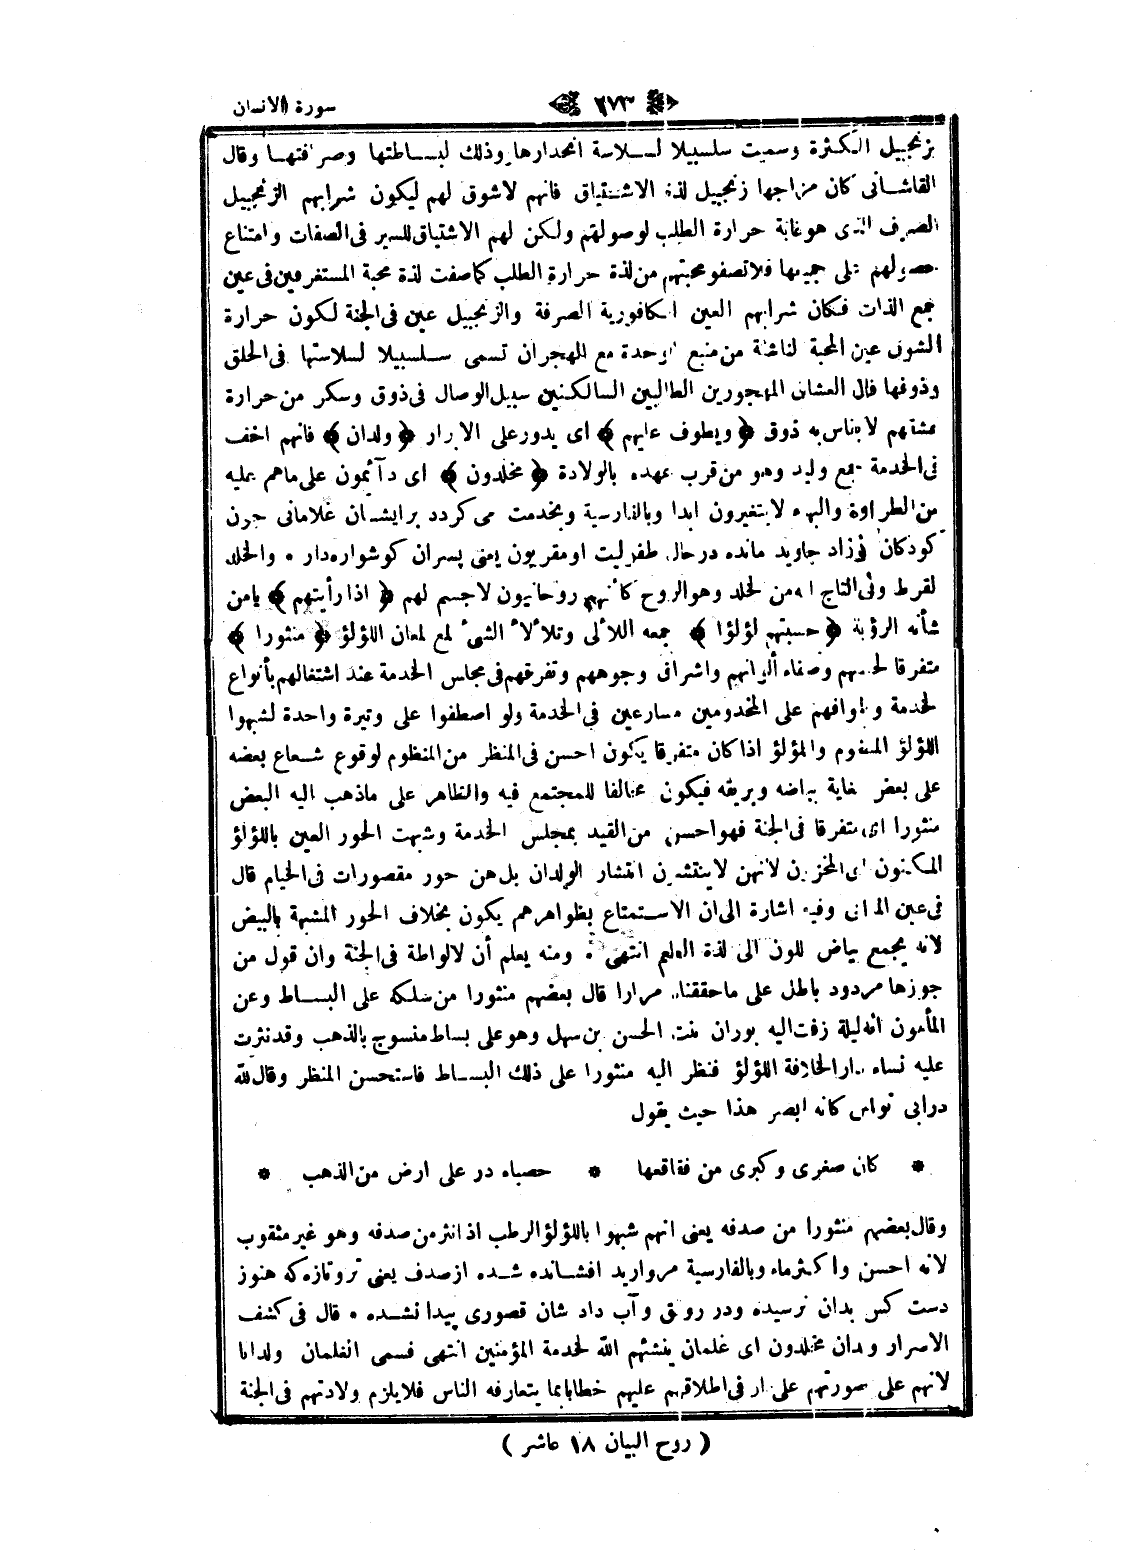 ٢٧٣ سورة الانسان
بزنجبيل الكثرة وسميت سلسبيلا لسلاسة انحدارها وذلك لبساطتها وصرافتها وقال
القاشانى كان مزاجها زنجبيل لذة الاشتياق فانهم لاشوق لهم ليكون شرابهم الزنجبيل
الصرف الذى هو غاية حرارة الطلب لوصولهم ولكن لهم الاشتياق للسير فى الصفات وامتناع
حصولهم على جميعها فلا تصفو محبتهم من لذة حرارة الطلب كما صفت لذة محبة المستغرقين فى عين
جمع الذات فكان شرابهم العين الكافورية الصرفة والزنجبيل عين فى الجنة لكون حرارة
الشوق عين المحبة الناشئة من منبع الوحدة مع الهجران تسمى سلسبيلا لسلاستها فى الحلق
وذوقها قال العشاق المهجورين الطالبين السالكين سبيل الوصال فى ذوق وسكر من حرارة
عشقهم لا يقاس به ذوق ﴿ ويطوف عليهم ﴾ اى يدور على الابرار ﴿ ولدان ﴾ فانهم اخف
فى الخدمة جمع وليد وهو من قرب عهده بالولادة ﴿ مخلدون ﴾ اى دآئمون على ماهم عليه
من الطراوة والبهاء لا يتغيرون ابدا وبالفارسية وبخدمت مى كردد برايشان غلامانى جون
كودكان نوزاد جاويد مانده درحال طفوليت او مقرطون يعنى پسران كوشواره دار • والخلد
القرط وفى التاج انه من الخلد وهو الروح كأنهم روحانيون لاجسم لهم ﴿ اذا رأيتهم ﴾ يامن
شأنه الرؤية ﴿ حسبتهم لؤلؤا ﴾ جمعه اللآلى وتلألأ الشئ لمع لمعان اللؤلؤ ﴿ منثورا ﴾
متفرقا لحسنهم وصفاء ألوانهم واشراق وجوههم وتفرقهم فى مجالس الخدمة عند اشتغالهم بأنواع
الخدمة وطوافهم على المخدومين مسارعين فى الخدمة ولو اصطفوا على وتيرة واحدة لشبهوا
اللؤلؤ المنظوم والمؤلؤ اذا كان متفرقا يكون احسن فى المنظر من المنظوم لوقوع شعاع بعضه
على بعض غاية بياضه وبريقه فيكون مخالفا للمجتمع فيه والظاهر على ماذهب اليه البعض
منثورا اى متفرقا فى الجنة فهو احسن من القيد بمجلس الخدمة وشبهت الحور العين باللؤلؤ
المكنون اى المخزون لانهن لا ينتشرن انتشار الولدان بل هن حور مقصورات فى الخيام قال
فى عين المعانى وفيه اشارة الى ان الاستمتاع بظواهرهم يكون بخلاف الحور المشبهة بالبيض
لانه يجمع بياض للون الى لذة الطعم انتهى • ومنه يعلم أن لالواطة فى الجنة وان قول من
جوزها مردود باطل على ماحققناه مرارا قال بعضهم منثورا من سلكه على البساط وعن
المأمون انه ليلة زفت اليه بوران بنت الحسن بن سهل وهو على بساط منسوج بالذهب وقد نثرت
عليه نساء دار الخلافة اللؤلؤ فنظر اليه منثورا على ذلك البساط فاستحسن المنظر وقال لله
در ابى نواس كانه ابصر هذا حيث يقول
* كان صغرى وكبرى من فقاقعها * حصباء در على ارض من الذهب *
وقال بعضهم منثورا من صدفه يعنى انهم شبهوا باللؤلؤ الرطب اذ انثر من صدفه وهو غير مثقوب
لانه احسن واكثر ماء وبالفارسية مرواريد افشانده شده از صدف يعنى تر وتازه كه هنوز
دست كس بدان نرسيده ودر رونق وآب داد شان قصورى پيدا نشده • قال فى كشف
الاسرار ولدان مخلدون اى غلمان ينشئهم الله لخدمة المؤمنين انتهى فسمى الغلمان ولدانا
لانهم على صورتهم على ار فى اطلاقهم عليهم خطابا بما يتعارفه الناس فلا يلزم ولادتهم فى الجنة
( روح البيان ١٨ عاشر )